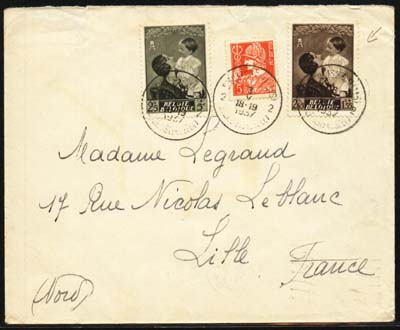 BELGIE
BELGIQUE
5
BELGIE
BELGIQUE
18-19
1937
2
2
Madame Legrand
17 Rue Nicolas Leblanc
Lille France
(Nord)